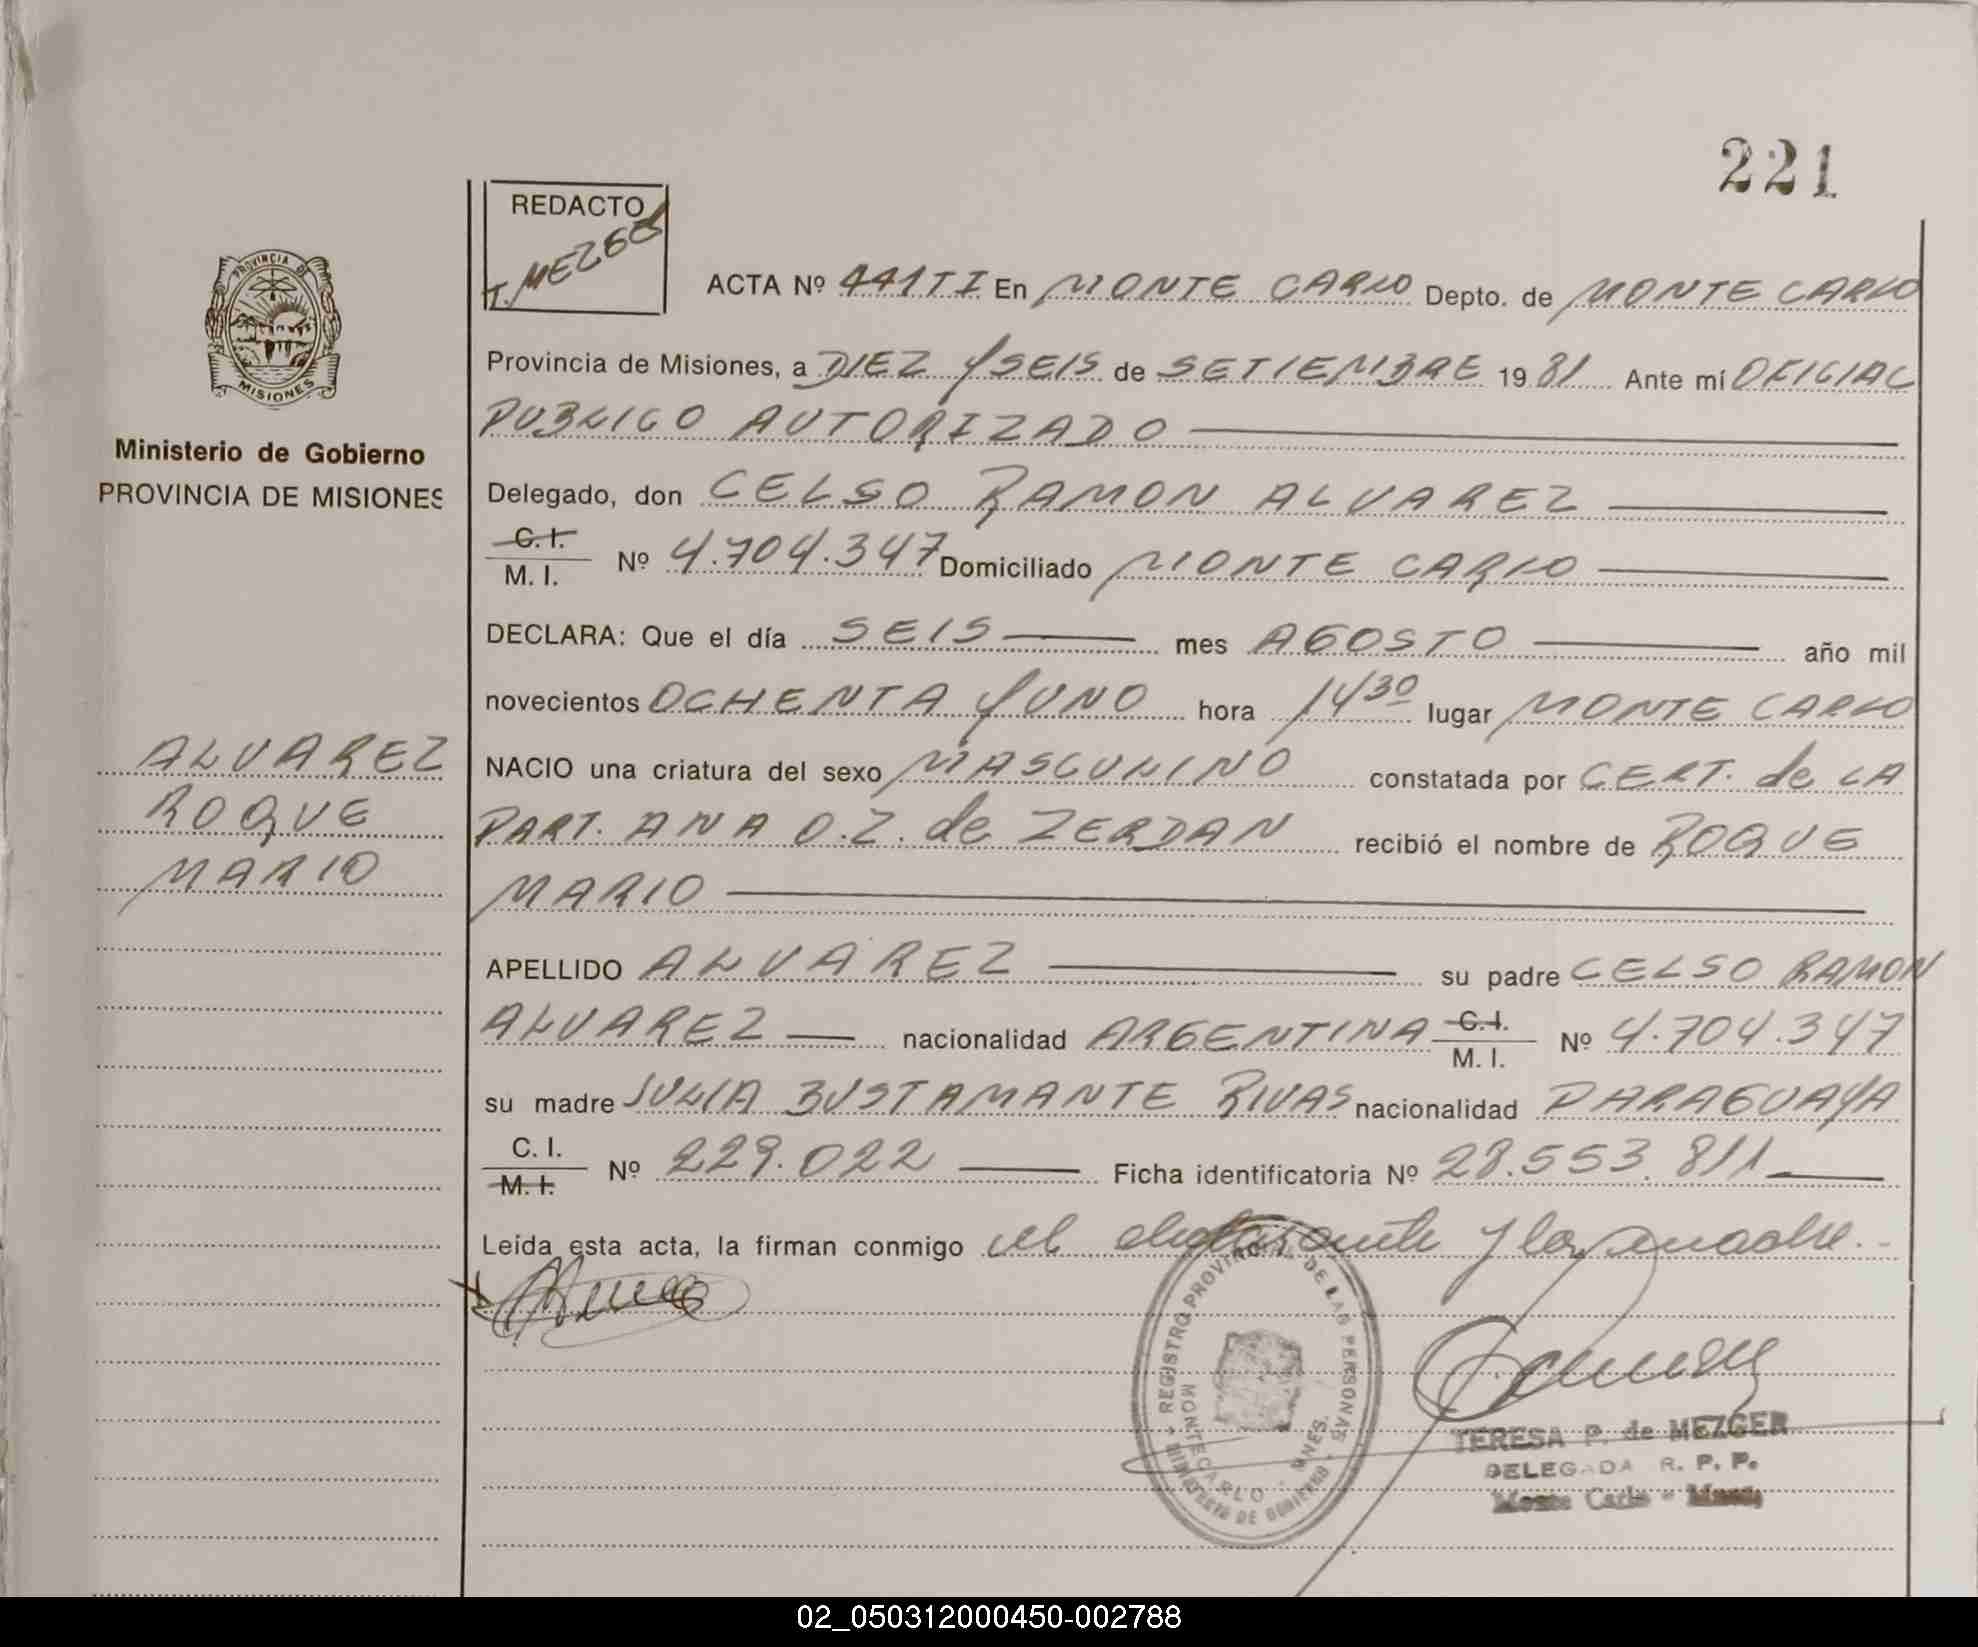 221
REDACTO
T. MEZGER
PROVINCIA DE
MISIONES
Ministerio de Gobierno
PROVINCIA DE MISIONES
ALVAREZ
ROQUE
MARIO
ACTA Nº 441TI En MONTE CARLO Depto. de MONTE CARLO
Provincia de Misiones, a DIEZ Y SEIS de SETIEMBRE 1981 Ante mí OFICIAL
PUBLICO AUTORIZADO
Delegado, don CELSO RAMON ALVAREZ
C. I.
M. I. Nº 4.704.347 Domiciliado MONTE CARLO
DECLARA: Que el día SEIS mes AGOSTO año mil
novecientos OCHENTA Y UNO hora 14 30 lugar MONTE CARLO
NACIO una criatura del sexo MASCULINO constatada por CERT. de LA
PART. ANA O.Z. de ZERDAN recibió el nombre de ROQUE
MARIO
APELLIDO ALVAREZ su padre CELSO RAMON
ALVAREZ nacionalidad ARGENTINA C. I. M. I. Nº 4.704.347
su madre JULIA BUSTAMANTE RIVAS nacionalidad PARAGUAYA
C. I.
M. I. Nº 229.022 Ficha identificatoria Nº 28.553.811
Leída esta acta, la firman conmigo el declarante y la madre.
REGISTRO PROVINCIAL DE LAS PERSONAS
MONTECARLO - MNES.
MINISTERIO DE GOBIERNO
TERESA P. de MEZGER
DELEGADA R. P. P.
Monte Carlo - Mnes.
02_050312000450-002788